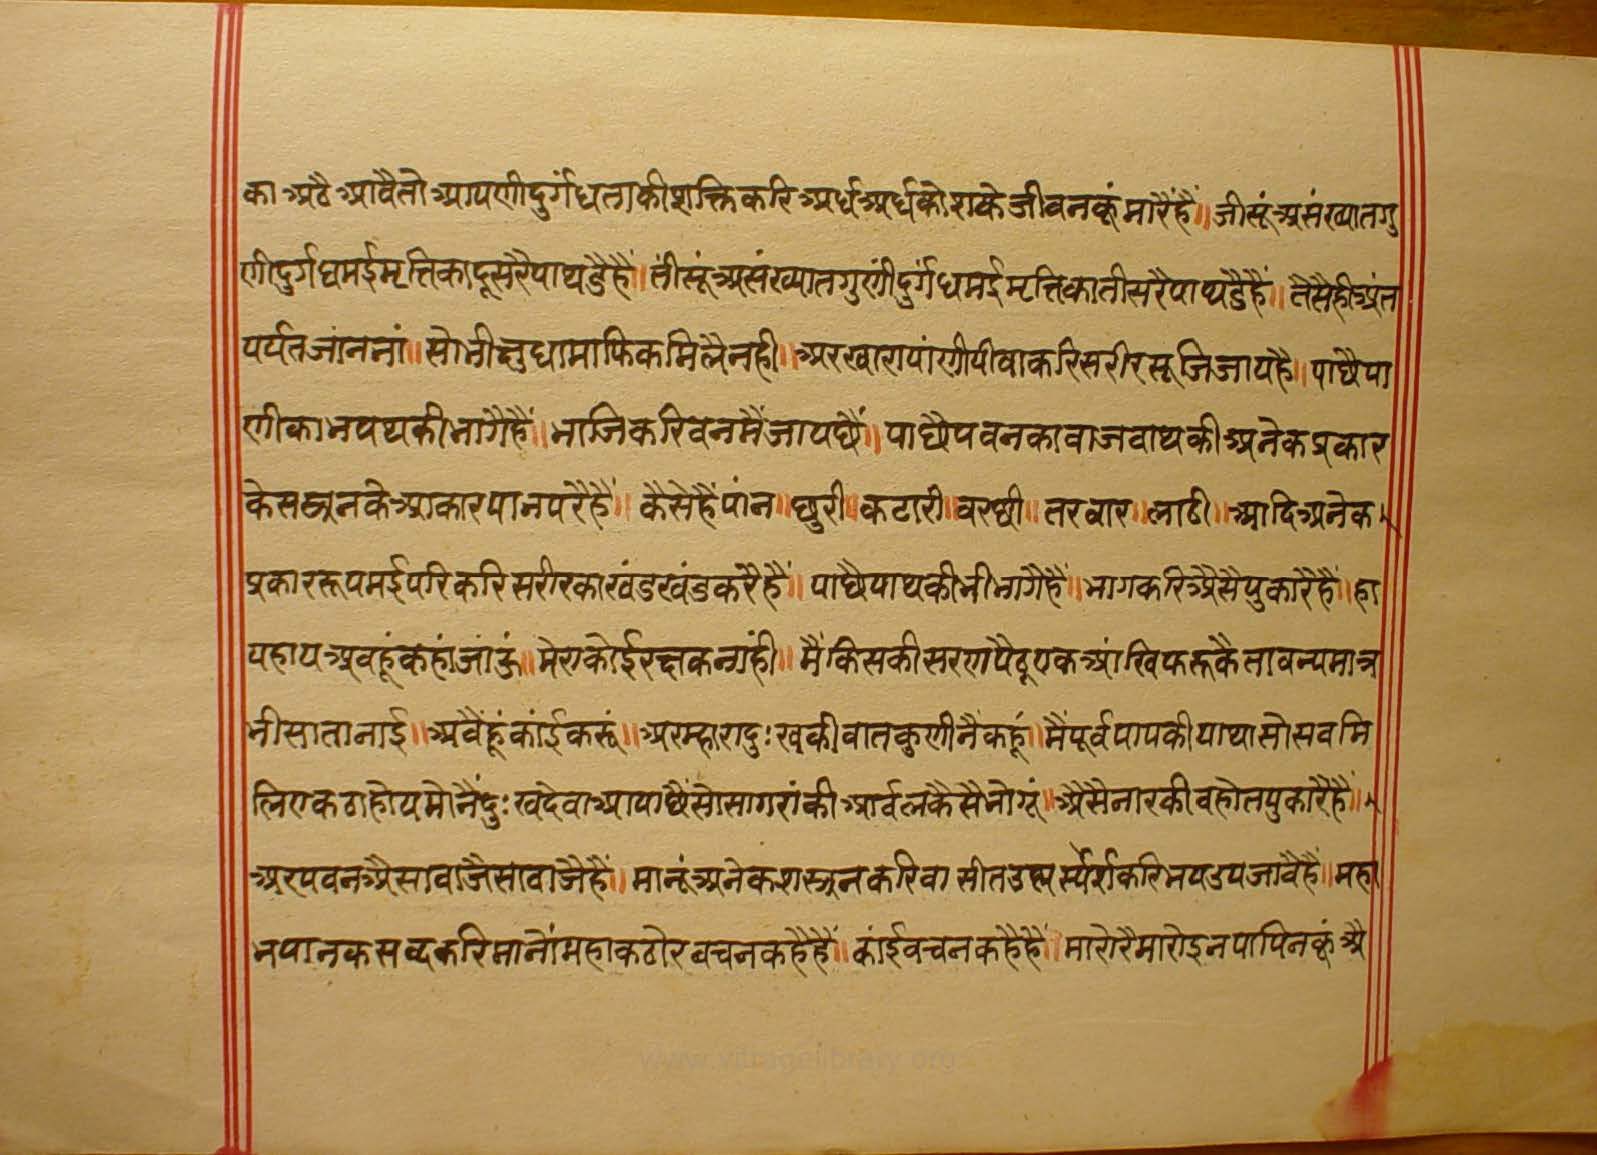 का अठै आवैतो आपणीदुर्गंधताकीशक्तिकरिअर्धअर्धकोशके जीवनकूं मारैहैं॥ जीसूंअसंख्यातगु
णीदुर्गंधमईमृत्तिकादूसरैपाथडैहै॥ तींसूंअसंख्यातगुणींदुर्गंधमईमृत्तिकातीसरैपाथडैहैं॥ तैसैहीअंत
पर्यंतजांननां॥ सोभीक्षुधामाफिकमिलैनही॥ अरखारापांणीपीवाकरिसरीरसूजिजायहै॥ पाछैपा
णीकाभयथकीभागैहैं॥ भाजिकरिवनमैंजायछैं॥ पाछैपवनकावाजवाथकीअनेकप्रकार
केसस्त्रनकेआकारपानपरैहैं॥ कैसेहैंपांन॥ छुरी॥ कटारी॥ वरछी॥ तरवार॥ लाठी॥ आदिअनेक
प्रकाररूपमईपरिकरिसरीरकाखंडखंडकरैहैं॥ पाछैपाथकीभीभागैहैं॥ भागकरिअैसैपुकारैहैं॥ हा
यहायअवहूंकहांजांऊं॥ मेराकोईरक्षकनांही॥ मैंकिसकीसरणपैठूएकआंखिफरूकैतावन्यमात्र
भीसातानाई॥ अवैहूंकांईकरूं॥ अरम्हारादुःखकीवातकुणीनैंकहूं॥ मैंपूर्वपापकीयाथासोसवमि
लिएकठाहोयमोनैंदुःखदेवाआयाछैंसोसागरांकीआर्वलकैसैभोगूं॥ अैसैनारकीवहोतपुकारैहैं॥
अरपवनअैसावजैसावाजैहैं॥ मानूंअनेकशस्त्रनकरिवा सीतउष्णस्पर्शकरिभयउपजावैहैं॥ महा
भयानकसव्दकरिमानोंमहाकठोरवचनकहैहैं॥ कांईवचनकहैहैं॥ मारोरैमारोइनपापिनकूंअै
www.vitragelibrary.org